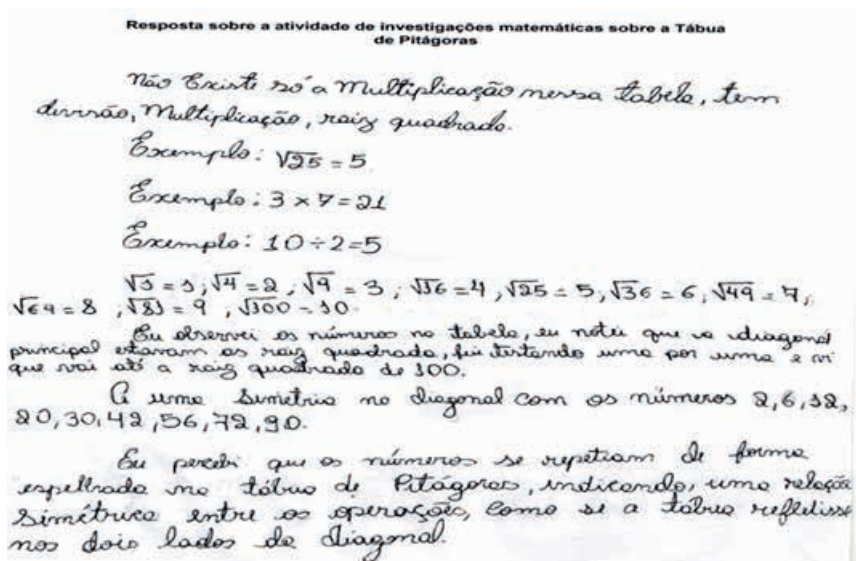 Resposta sobre a atividade de investigações matemáticas sobre a Tábua
de Pitágoras
Não Existe só a Multiplicação nessa tabela, tem
divisão, Multiplicação, raiz quadrado.
Exemplo: √25 = 5
Exemplo: 3 × 7 = 21
Exemplo: 10 ÷ 2 = 5
√1 = 1, √4 = 2, √9 = 3, √16 = 4, √25 = 5, √36 = 6, √49 = 7,
√64 = 8, √81 = 9, √100 = 10.
Eu observei os números na tabela, eu notei que na diagonal
principal estavam as raiz quadrada, fui testando uma por uma e vi
que vai até a raiz quadrada de 100.
A uma Simetria na diagonal com os números 2, 6, 12,
20, 30, 42, 56, 72, 90.
Eu percebi que os números se repetiam de forma
espelhada na tábua de Pitágoras, indicando, uma relação
Simétrica entre as operações, como se a tábua refletisse
nos dois lados da diagonal.